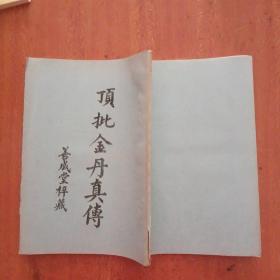 頂批金丹真傳
善成堂梓藏